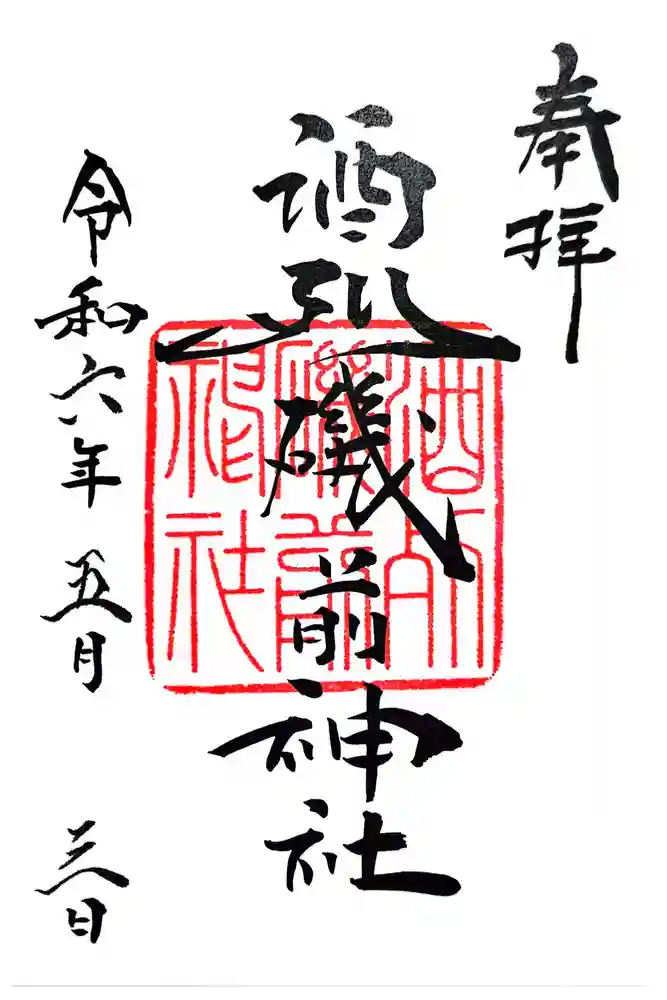 奉拝
酒列磯前神社
酒列磯前神社
令和六年五月三日